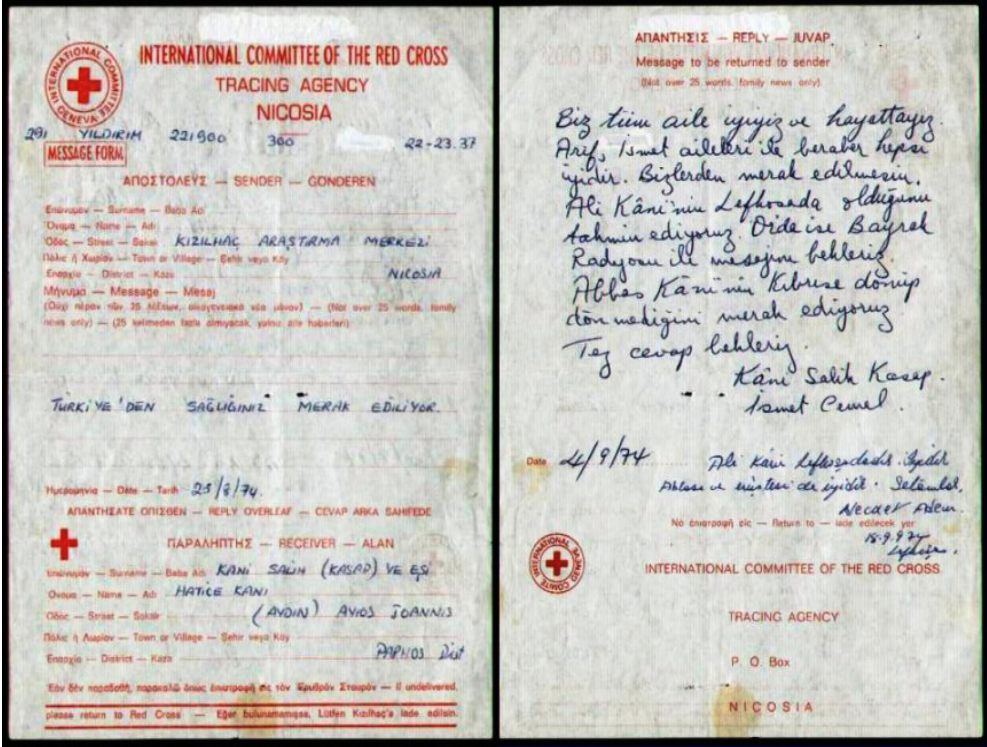 INTERNATIONAL COMMITTEE GENEVA
INTERNATIONAL COMMITTEE OF THE RED CROSS
TRACING AGENCY
NICOSIA
291 YILDIRIM 221900 300 22-23.37
MESSAGE FORM
ΑΠΟΣΤΟΛΕΥΣ — SENDER — GÖNDEREN
Επώνυμον — Surname — Baba Adı
Όνομα — Name — Adı
Οδός — Street — Sokak KIZILHAÇ ARAŞTIRMA MERKEZİ
Πόλις ή Χωρίον — Town or Village — Şehir veya Köy
Επαρχία — District — Kaza NICOSIA
Μήνυμα — Message — Mesaj
(Ούχι πέραν των 25 λέξεων, οικογενειακά νέα μόνον) — (Not over 25 words, family
news only) — (25 kelimeden fazla olmıyacak, yalnız aile haberleri)
TÜRKİYE'DEN SAĞLIĞINIZ MERAK EDİLİYOR.
Ημερομηνία — Date — Tarih 25/8/74.
ΑΠΑΝΤΗΣΑΤΕ ΟΠΙΣΘΕΝ — REPLY OVERLEAF — CEVAP ARKA SAHIFEDE
ΠΑΡΑΛΗΠΤΗΣ — RECEIVER — ALAN
Επώνυμον — Surname — Baba Adı KANİ SALİH (KASAP) VE EŞİ
Όνομα — Name — Adı HATİCE KANİ
Οδός — Street — Sokak (AYDIN) AYIOS JOANNIS
Πόλις ή Χωρίον — Town or Village — Şehir veya Köy
Επαρχία — District — Kaza PAPHOS Dist
Εάν δεν παραδοθή, παρακαλώ όπως επιστραφή εις τον Ερυθρόν Σταυρόν — if undelivered,
please return to Red Cross — Eğer bulunamamışsa, Lütfen Kızılhaç'a iade edilsin.
ΑΠΑΝΤΗΣΙΣ — REPLY — JUVAP
Message to be returned to sender
(Not over 25 words, family news only)
Biz tüm aile iyiyiz ve hayattayız.
Arif, İsmet aileleri ile beraber hepsi
iyidir. Bizlerden merak edilmesin.
Ali Kâni'nin Lefkoşada olduğunu
tahmin ediyoruz. Orda ise Bayrak
Radyosu ile mesajını bekleriz.
Abbas Kâni'nin Kıbrısa dönüp
dönmediğini merak ediyoruz
Tez cevap bekleriz.
Kâni Salih Kasap.
İsmet Cemel.
Date 4/9/74
Ali Kâni Lefkoşadadır. İyidir
Ablası ve eniştesi de iyidir.
Necdet
No επιστροφή εις — Return to — iade edilecek yer
18.9.974
INTERNATIONAL COMMITTEE OF THE RED CROSS
TRACING AGENCY
P. O. Box
NICOSIA